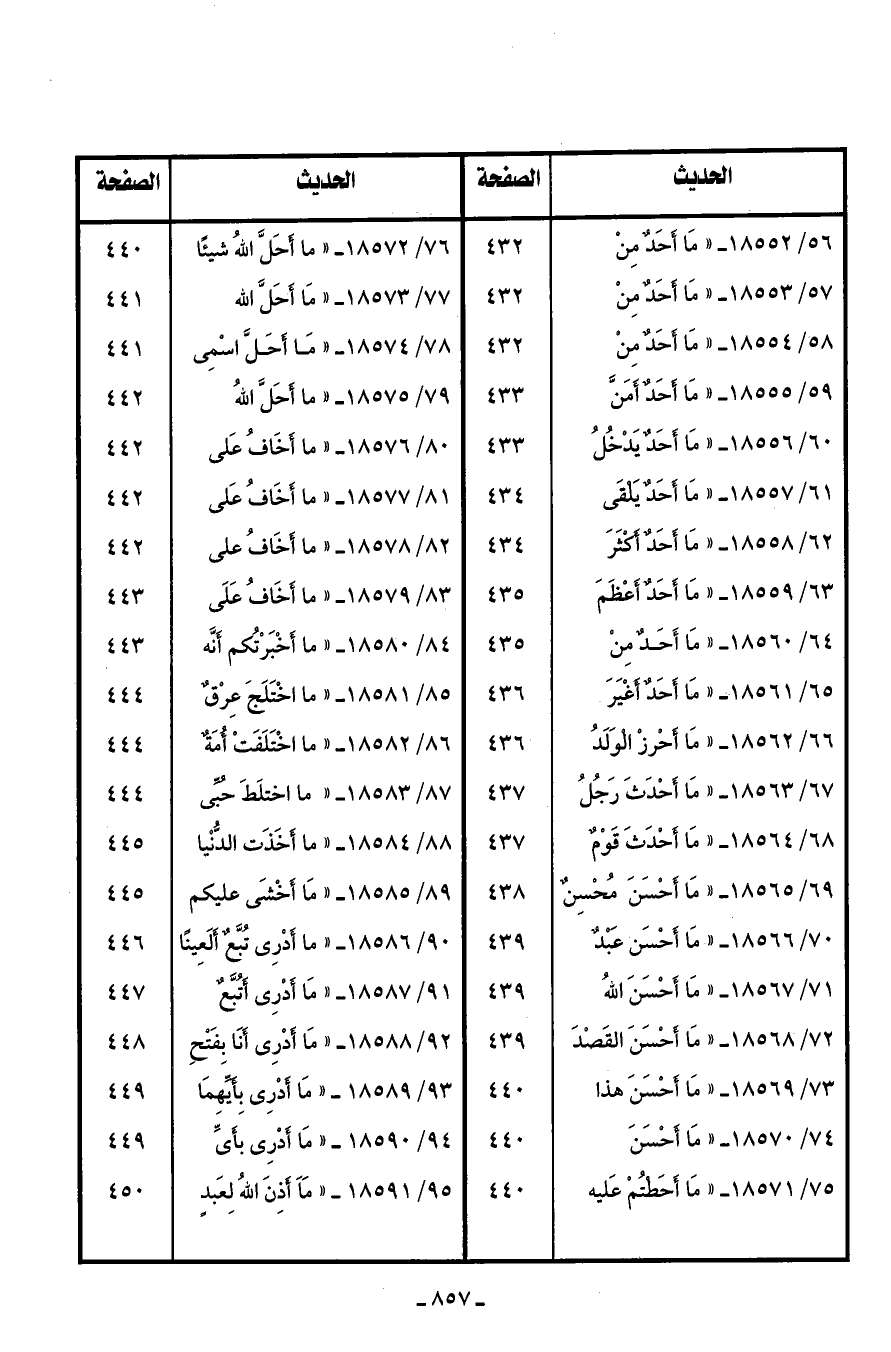 الحديث الصفحة الحديث الصفحة
٥٦/ ١٨٥٥٢ـ « مَا أَحَدٌ مِنْ ٤٣٢ ٧٦/ ١٨٥٧٢ـ « ما أَحَلَّ اللهُ شيئًا ٤٤٠
٥٧/ ١٨٥٥٣ـ « مَا أَحَدٌ مِنْ ٤٣٢ ٧٧/ ١٨٥٧٣ـ « مَا أَحَلَّ الله ٤٤١
٥٨/ ١٨٥٥٤ـ « مَا أَحَدٌ مِنْ ٤٣٢ ٧٨/ ١٨٥٧٤ـ « مَـا أَحَـلَّ اسْمِى ٤٤١
٥٩/ ١٨٥٥٥ـ « مَا أَحَدٌ أَمَنَّ ٤٣٣ ٧٩/ ١٨٥٧٥ـ « ما أَحَلَّ اللهُ ٤٤٢
٦٠/ ١٨٥٥٦ـ « مَا أَحَدٌ يَدْخُلُ ٤٣٣ ٨٠/ ١٨٥٧٦ـ « ما أَخَافُ عَلَى ٤٤٢
٦١/ ١٨٥٥٧ـ « مَا أَحَدٌ يَلْقَى ٤٣٤ ٨١/ ١٨٥٧٧ـ « ما أَخَافُ عَلَى ٤٤٢
٦٢/ ١٨٥٥٨ـ « مَا أَحَدٌ أَكْثَرَ ٤٣٤ ٨٢/ ١٨٥٧٨ـ « ما أَخَافُ على ٤٤٢
٦٣/ ١٨٥٥٩ـ « مَا أَحَدٌ أَعْظَمَ ٤٣٥ ٨٣/ ١٨٥٧٩ـ « ما أَخَافُ عَلَى ٤٤٣
٦٤/ ١٨٥٦٠ـ « مَا أَحَـدٌ مِنْ ٤٣٥ ٨٤/ ١٨٥٨٠ـ « ما أَخْبَرْتُكم أَنَّه ٤٤٣
٦٥/ ١٨٥٦١ـ « مَا أَحَدٌ أَغْيَرَ ٤٣٦ ٨٥/ ١٨٥٨١ـ « ما اخْتَلَجَ عِرْقٌ ٤٤٤
٦٦/ ١٨٥٦٢ـ « مَا أَحْرزْ الْوَلَدُ ٤٣٦ ٨٦/ ١٨٥٨٢ـ « ما اخْتَلَفَتْ أُمَةٌ ٤٤٤
٦٧/ ١٨٥٦٣ـ « مَا أَحْدَثَ رَجُلُ ٤٣٧ ٨٧/ ١٨٥٨٣ـ « ما اختلَطَ حُبِّى ٤٤٤
٦٨/ ١٨٥٦٤ـ « مَا أَحْدَثَ قَوْمٌ ٤٣٧ ٨٨/ ١٨٥٨٤ـ « ما أَخَذَت الدُّنْيا ٤٤٥
٦٩/ ١٨٥٦٥ـ « مَا أَحْسَنَ مُحْسِنٌ ٤٣٨ ٨٩/ ١٨٥٨٥ـ « مَا أَخْشَى عليكم ٤٤٥
٧٠/ ١٨٥٦٦ـ « مَا أَحْسَن عَبْدٌ ٤٣٩ ٩٠/ ١٨٥٨٦ـ « ما أَدْرِى تُبَّعٌ أَلَعِينًا ٤٤٦
٧١/ ١٨٥٦٧ـ « مَا أَحْسَنَ اللهُ ٤٣٩ ٩١/ ١٨٥٨٧ـ « مَا أَدْرِى أَتُبَّعٌ ٤٤٧
٧٢/ ١٨٥٦٨ـ « مَا أَحْسَنَ القَصْدَ ٤٣٩ ٩٢/ ١٨٥٨٨ـ « مَا أَدْرِى أَنَا بِفَتْحِ ٤٤٨
٧٣/ ١٨٥٦٩ـ « مَا أَحْسَنَ هذا ٤٤٠ ٩٣/ ١٨٥٨٩ ـ « مَا أَدْرِى بِأَيِّهِمَا ٤٤٩
٧٤/ ١٨٥٧٠ـ « مَا أَحْسَنَ ٤٤٠ ٩٤/ ١٨٥٩٠ ـ « مَا أَدْرِى بأَىِّ ٤٤٩
٧٥/ ١٨٥٧١ـ « مَا أَحَطْتُمْ عَليه ٤٤٠ ٩٥/ ١٨٥٩١ ـ « مَاَ أَذِنَ اللهُ لِعَبَدٍ ٤٥٠
ـ ٨٥٧ ـ